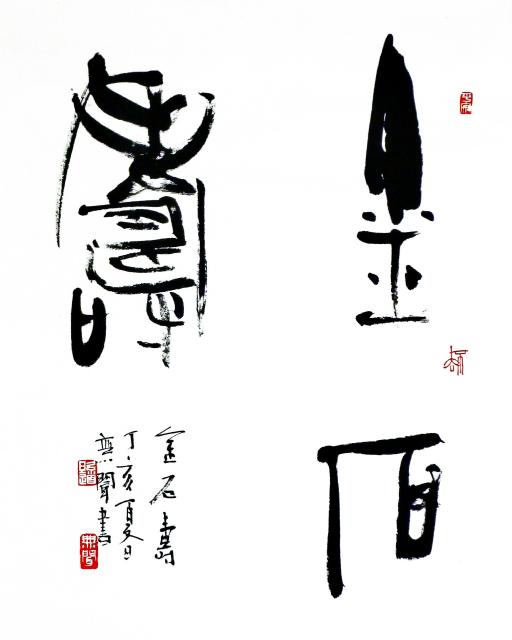 金石
壽
金石壽
丁亥夏日
無聞書